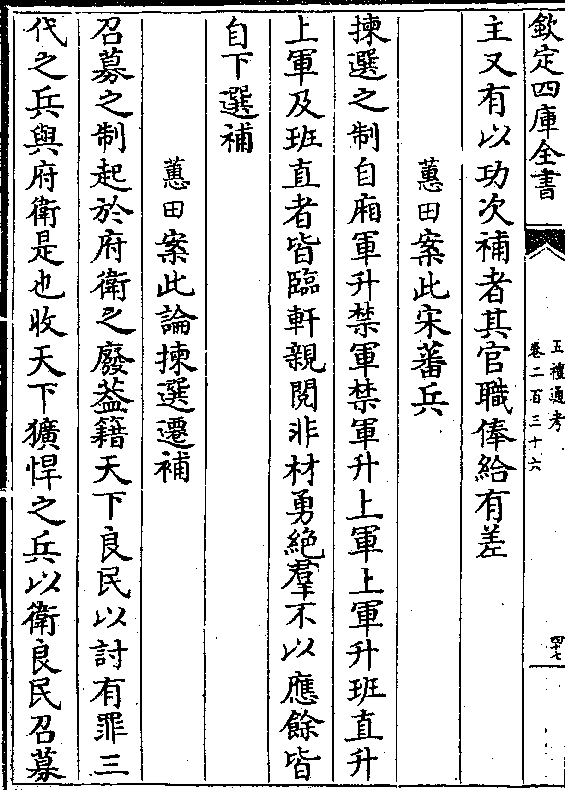 欽定四庫全書
五禮通考
卷二百三十六
四十七
主又有以功次補者其官職俸給有差
蕙田案此宋蕃兵
揀選之制自廂軍升禁軍禁軍升上軍上軍升班直升
上軍及班直者皆臨軒親閱非材勇絶羣不以應餘皆
自下選補
蕙田案此論揀選遷補
召募之制起於府衛之廢葢籍天下良民以討有罪三
代之兵與府衛是也收天下獷悍之兵以衛良民召募